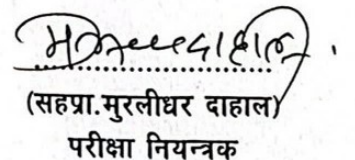 (सहप्रा.मुरलीधर दाहाल)
परीक्षा नियन्त्रक